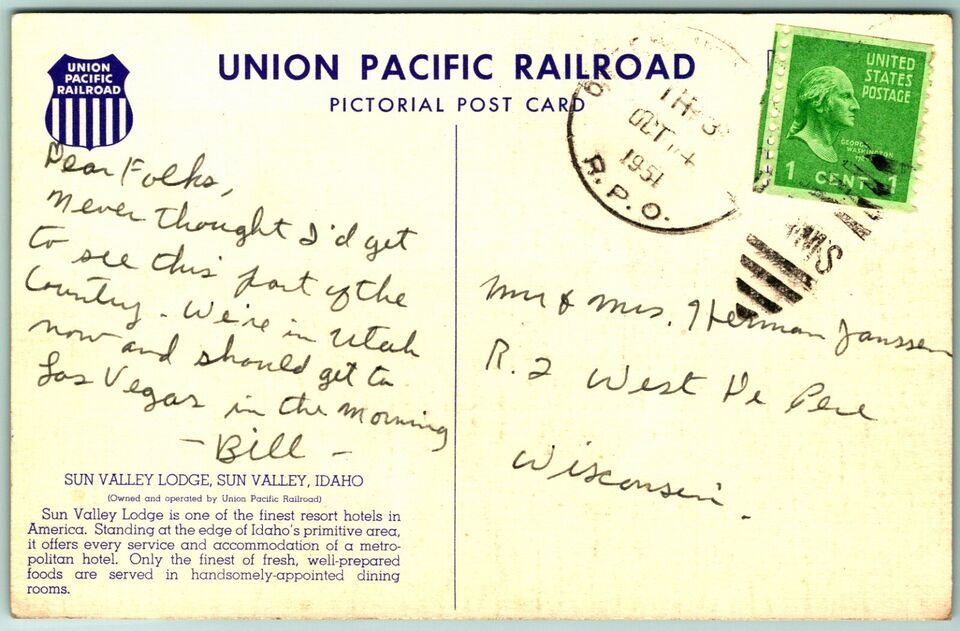 UNION
PACIFIC
RAILROAD
UNION PACIFIC RAILROAD
PICTORIAL POST CARD
TR 3
OCT 14
1951
R.P.O.
UNITED
STATES
POSTAGE
GEORGE
WASHINGTON
1 CENT 1
RMS
Dear Folks,
Never thought I'd get
to see this part of the
Country. We're in Utah
now and should get to
Las Vegas in the morning
- Bill -
Mr & Mrs. Herman Janssen
R. 2 West De Pere
Wisconsin.
SUN VALLEY LODGE, SUN VALLEY, IDAHO
(Owned and operated by Union Pacific Railroad)
Sun Valley Lodge is one of the finest resort hotels in
America. Standing at the edge of Idaho's primitive area,
it offers every service and accommodation of a metro-
politan hotel. Only the finest of fresh, well-prepared
foods are served in handsomely-appointed dining
rooms.